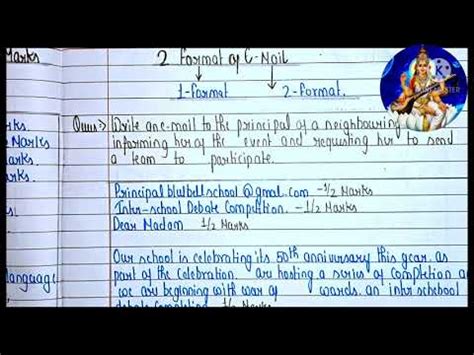 Marks
2 format of E-Mail
1-format
2-format.
arks.
e Marks
arks.
arks.
Ques:) Write an e-mail to the principal of a neighbouring
informing her of the event and requsting her to send
a team to participate.
Principal blulbell school @ gmal.com -1/2 Marks
Inter-school Debate Compitution. -1/2 Marks
Dear Madam 1/2 Marks
Our school is celebrating its 50th anniversary this year. as
part of the celebration. are hosting a series of completion a
language
we are beginning with war of words. an intr schehool
debate